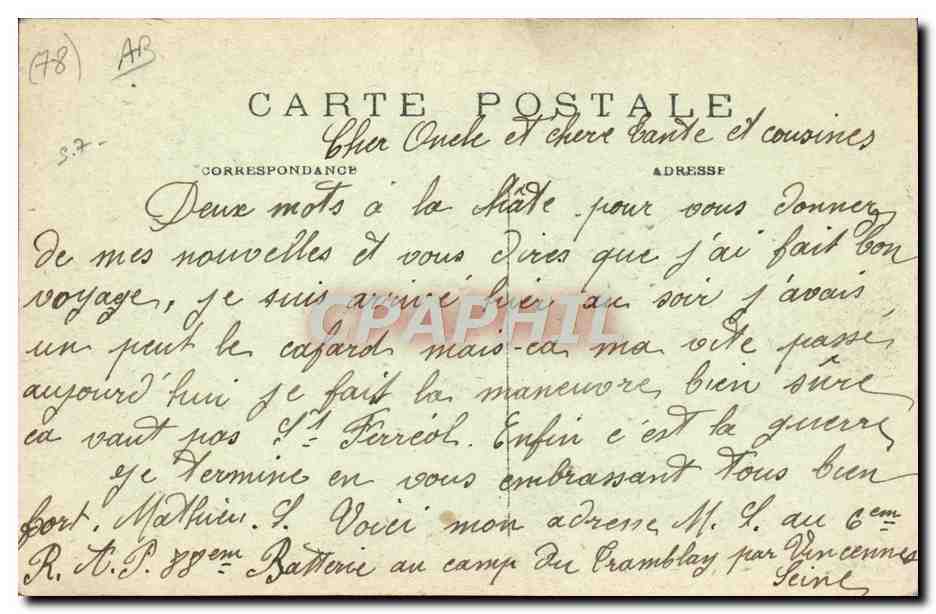 (78) AB
CARTE POSTALE
Cher Oncle et chere tante et cousines
3.7-
CORRESPONDANCE ADRESSE
Deux mots à la hâte pour vous donner
de mes nouvelles et vous dires que j'ai fait bon
voyage, je suis arrivé hier au soir j'avais
CPAPHIL
un peut le cafard mais ca ma vite passé
aujourd'hui je fait la maneuvre bien sûre
ca vaut pas St Ferréol. Enfin c'est la guerre
Je termine en vous embrassant tous bien
fort. Mathieu. S. Voici mon adresse M. S. au 6em
R. A. P. 88em Batterie au camp du Tramblay par Vincennes
Seine